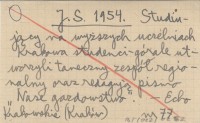 J.S. 1954. Studiu-
jący na wyższych uczelniach
Krakowa studenci-górale ut-
worzyli taneczny zespół regio-
nalny oraz redagują pismo
"Nasze gazdostwo". Echo
Krakowskie (Kraków)
nr 77